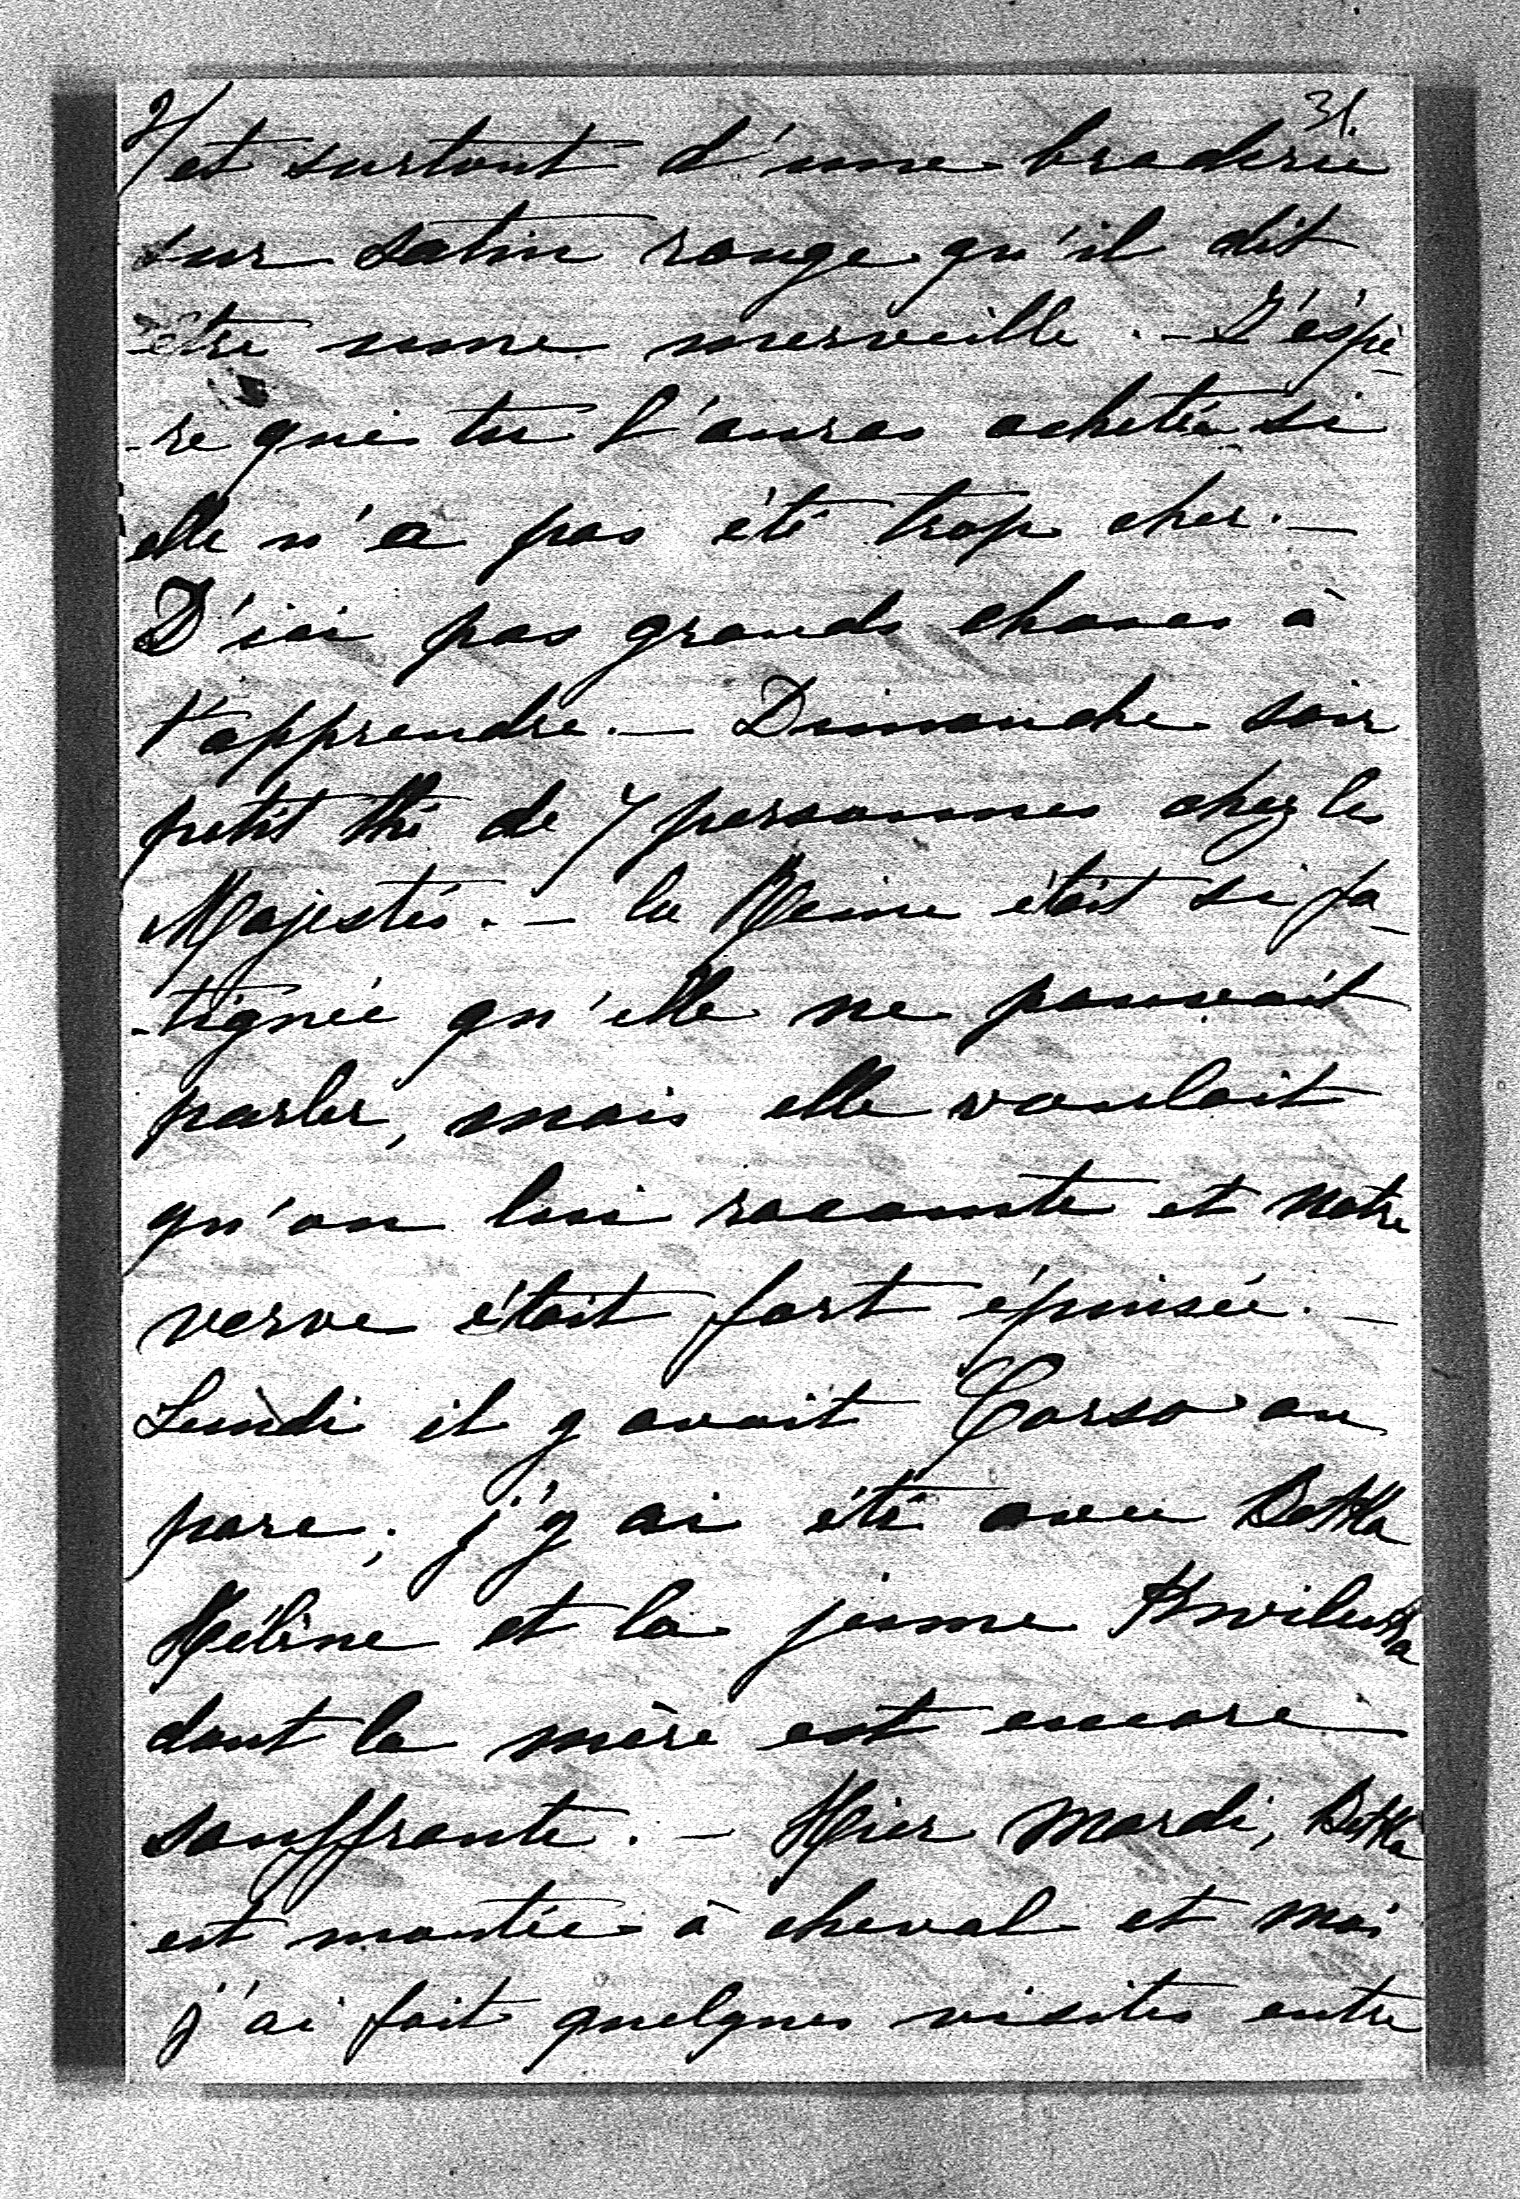 31.
2/ et surtout d'une broderie
sur satin rouge qu'il dit
être une merveille. - J'éspè-
-re que tu l'auras achetée si
elle n'a pas été trop cher. -
D'ici pas grands choses à
t'apprendre. - Dimanche soir
petit thé de 7 personnes chez les
Majestés. - la Reine était si fa-
-tignée qu'elle ne pouvait
parler, mais elle voulait
qu'on lui raconte et notre
verve était fort épuisée. -
Lundi il y avait Corso au
parc; j'y ai été avec Betka
Hélène et la jeune Kwilecka
dont la mère est encore
souffrante. - Hier Mardi, Betka
est montée à cheval et moi
j'ai fait quelques visites entre